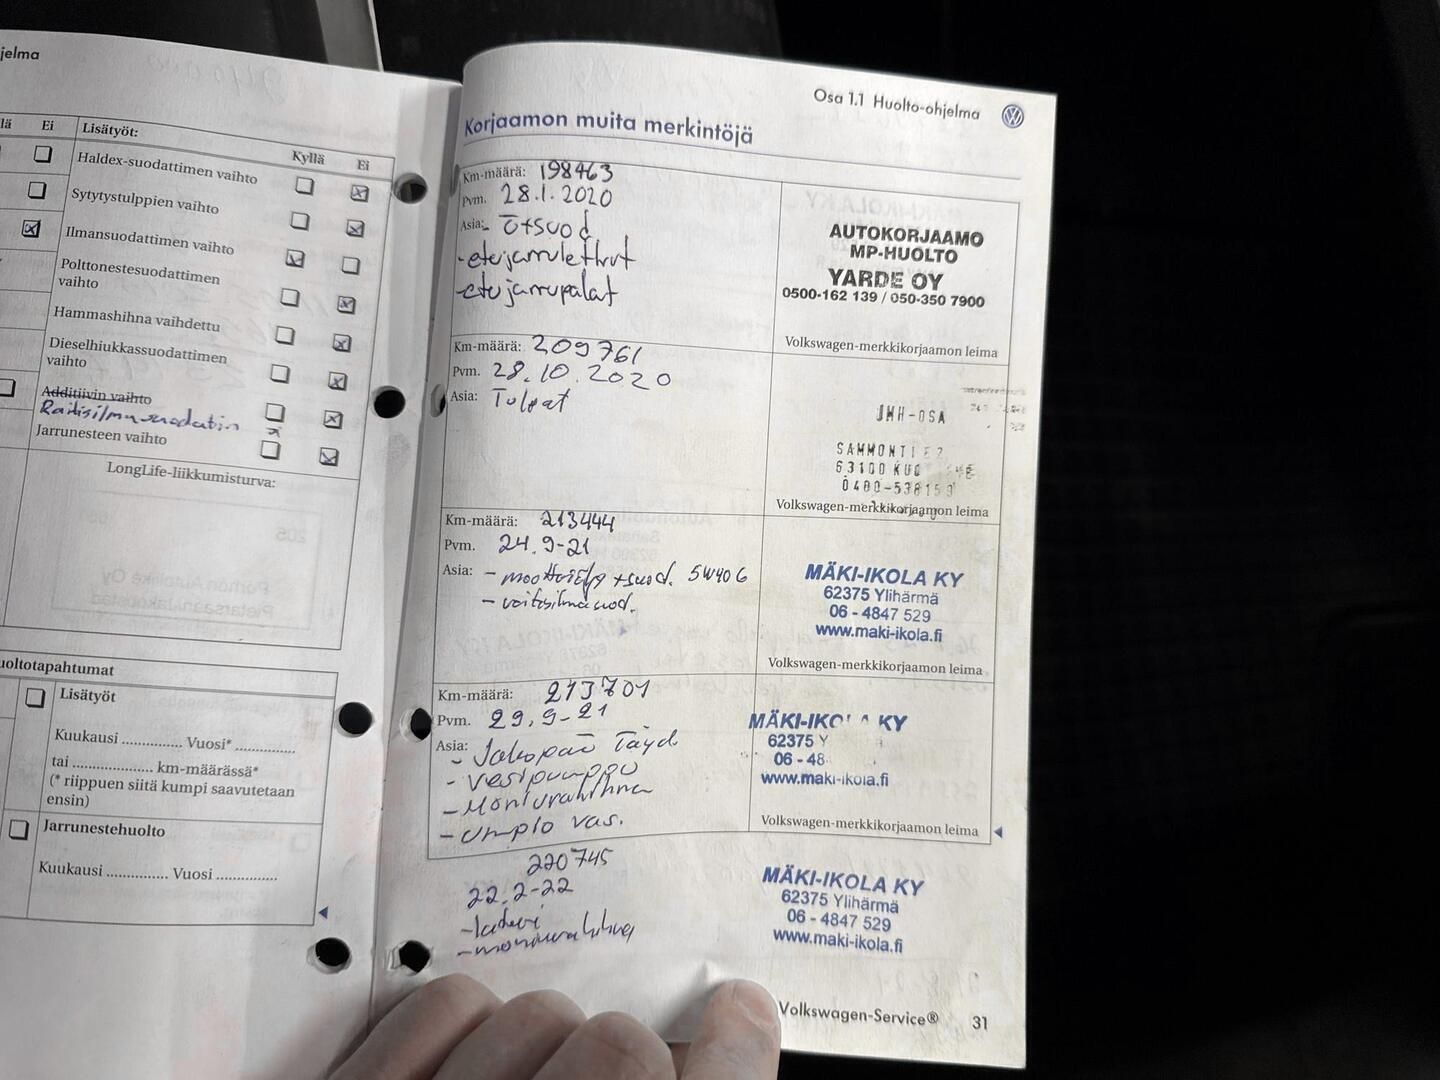 jelma
lä Ei Lisätyöt: Kyllä Ei
Haldex-suodattimen vaihto
Sytytystulppien vaihto
Ilmansuodattimen vaihto
Polttonestesuodattimen
vaihto
Hammashihna vaihdettu
Dieselhiukkassuodattimen
vaihto
Additiivin vaihto
Raitisilmasuodatin
Jarrunesteen vaihto
LongLife-liikkumisturva:
uoltotapahtumat
Lisätyöt
Kuukausi ............... Vuosi* ...............
tai .................... km-määrässä*
(* riippuen siitä kumpi saavutetaan
ensin)
Jarrunestehuolto
Kuukausi ............... Vuosi ...............
Osa 1.1 Huolto-ohjelma
Korjaamon muita merkintöjä
Km-määrä: 198463
Pvm. 28.1.2020
Asia: - Ö+suod
- etujarruletkut
- etujarrupalat
AUTOKORJAAMO
MP-HUOLTO
YARDE OY
0500-162 139 / 050-350 7900
Volkswagen-merkkikorjaamon leima
Km-määrä: 209761
Pvm. 28.10.2020
Asia: Tulpat
JMH-OSA
SAMMONTIE 2
63100 KUO
0400-538159
Volkswagen-merkkikorjaamon leima
Km-määrä: 213444
Pvm. 24.9-21
Asia: - moottoriöljy +suod. 5W40 G
- raitisilmasuod.
MÄKI-IKOLA KY
62375 Ylihärmä
06 - 4847 529
www.maki-ikola.fi
Volkswagen-merkkikorjaamon leima
Km-määrä: 213701
Pvm. 29.9-21
Asia: - Jakopää täyd
- Vesipumppu
- Moniurahihna
MÄKI-IKOLA KY
62375 Y
06 - 48
www.maki-ikola.fi
Volkswagen-merkkikorjaamon leima
220745
22.2-22
- laturi
- moniurahihna
MÄKI-IKOLA KY
62375 Ylihärmä
06 - 4847 529
www.maki-ikola.fi
Volkswagen-Service® 31